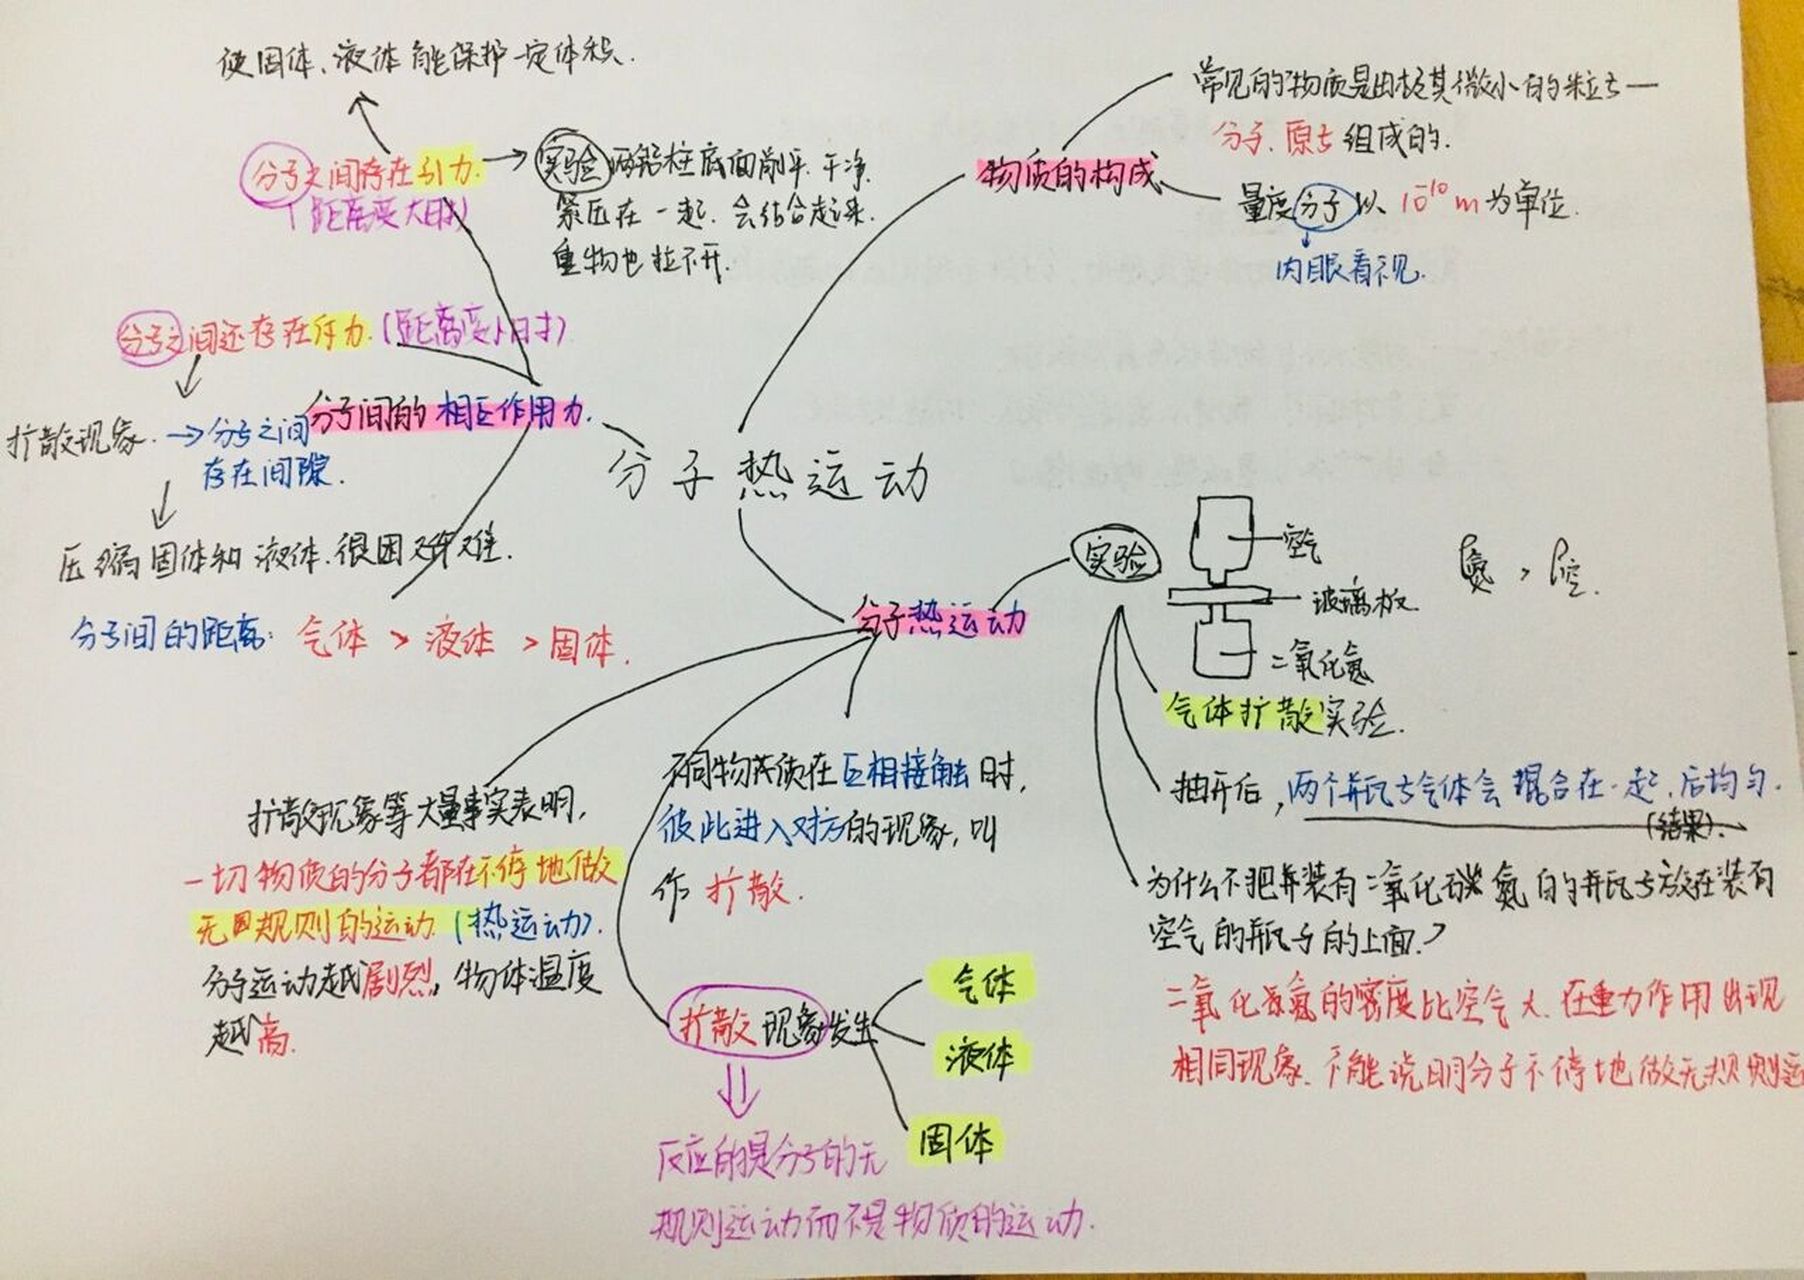 使固体、液体能保护一定体积.
分子之间存在引力.
(距离变大时)
实验 两铅柱底面削平.干净.
紧压在一起.会结合起来.
重物也拉不开.
物质的构成
常见的物质是由极其微小的粒子—
分子.原子组成的.
量度分子以 10⁻¹⁰ m 为单位.
肉眼看不见.
分子之间还存在斥力.(距离变小时)
分子间的相互作用力.
扩散现象. → 分子之间
存在间隙.
压缩固体和液体.很困难.
分子间的距离: 气体 > 液体 > 固体.
分子热运动
分子热运动
实验
空气
玻璃板.
二氧化氮
ρ氮 > ρ空.
气体扩散实验.
抽开后,两个瓶子气体会混合在一起,后均匀.
(结果).
为什么不把装有二氧化氮的瓶子放在装有
空气的瓶子的上面?
二氧化氮的密度比空气大.在重力作用出现
相同现象.不能说明分子不停地做无规则运
扩散现象等大量事实表明,
一切物质的分子都在不停地做
无规则的运动.(热运动).
分子运动越剧烈,物体温度
越高.
不同物质在互相接触时,
彼此进入对方的现象,叫
作 扩散.
扩散现象发生
气体
液体
固体
反应的是分子的无
规则运动而不是物质的运动.